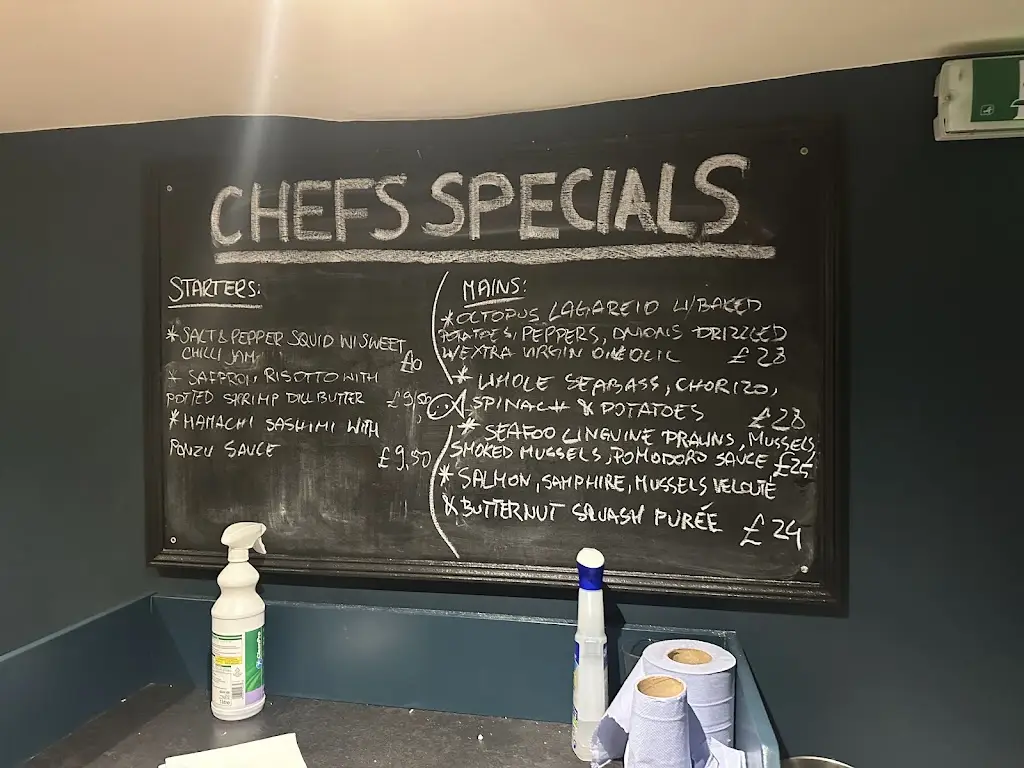 CHEFS SPECIALS
STARTERS:
*SALT & PEPPER SQUID W/SWEET
CHILLI JAM
* SAFFRON, RISOTTO WITH
POTTED SHRIMP DILL BUTTER £9,50
*HAMACHI SASHIMI WITH
PONZU SAUCE £9,50
MAINS:
*OCTOPUS LAGAREIO W/BAKED
POTATOES, PEPPERS, ONIONS DRIZZLED
W/EXTRA VIRGIN £28
* WHOLE SEABASS, CHORIZO,
SPINACH & POTATOES £28
* SEAFOO LINGUINE PRAWNS, MUSSELS,
SMOKED MUSSELS, POMODORO SAUCE £25
*SALMON, SAMPHIRE, MUSSELS VELOUTÉ
& BUTTERNUT SQUASH PURÉE £24